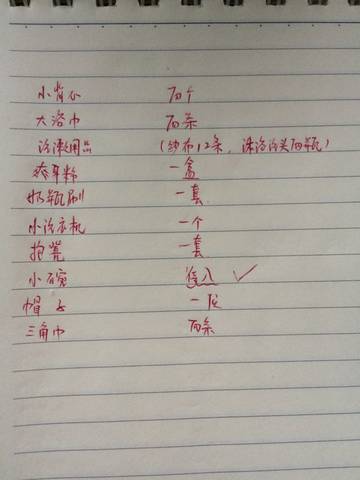 小背心 两个
大浴巾 两条
洗漱用品 (纱布12条, 沐浴洗头两瓶)
粉 一盒
奶瓶刷 一套
小洗衣机 一个
一套
小碗 待入 ✓
帽子 一
三角巾 两条